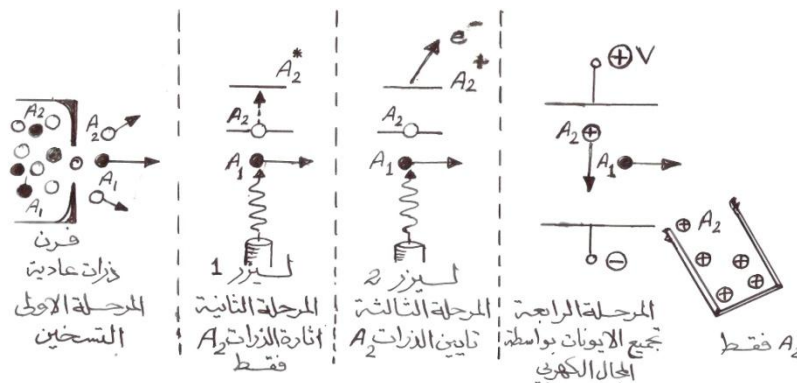 A2
A1
A2
A1
فرن
ذرات عادية
المرحلة الاولى
التسخين
A2*
A2
A1
ليزر 1
المرحلة الثانية
اثارة الذرات A2
فقط
e-
A2+
A2
A1
ليزر 2
المرحلة الثالثة
تايين الذرات A2
+V
A2 +
A1
-
المرحلة الرابعة
تجميع الايونات بواسطة
المجال الكهربي
A2
A2 فقط